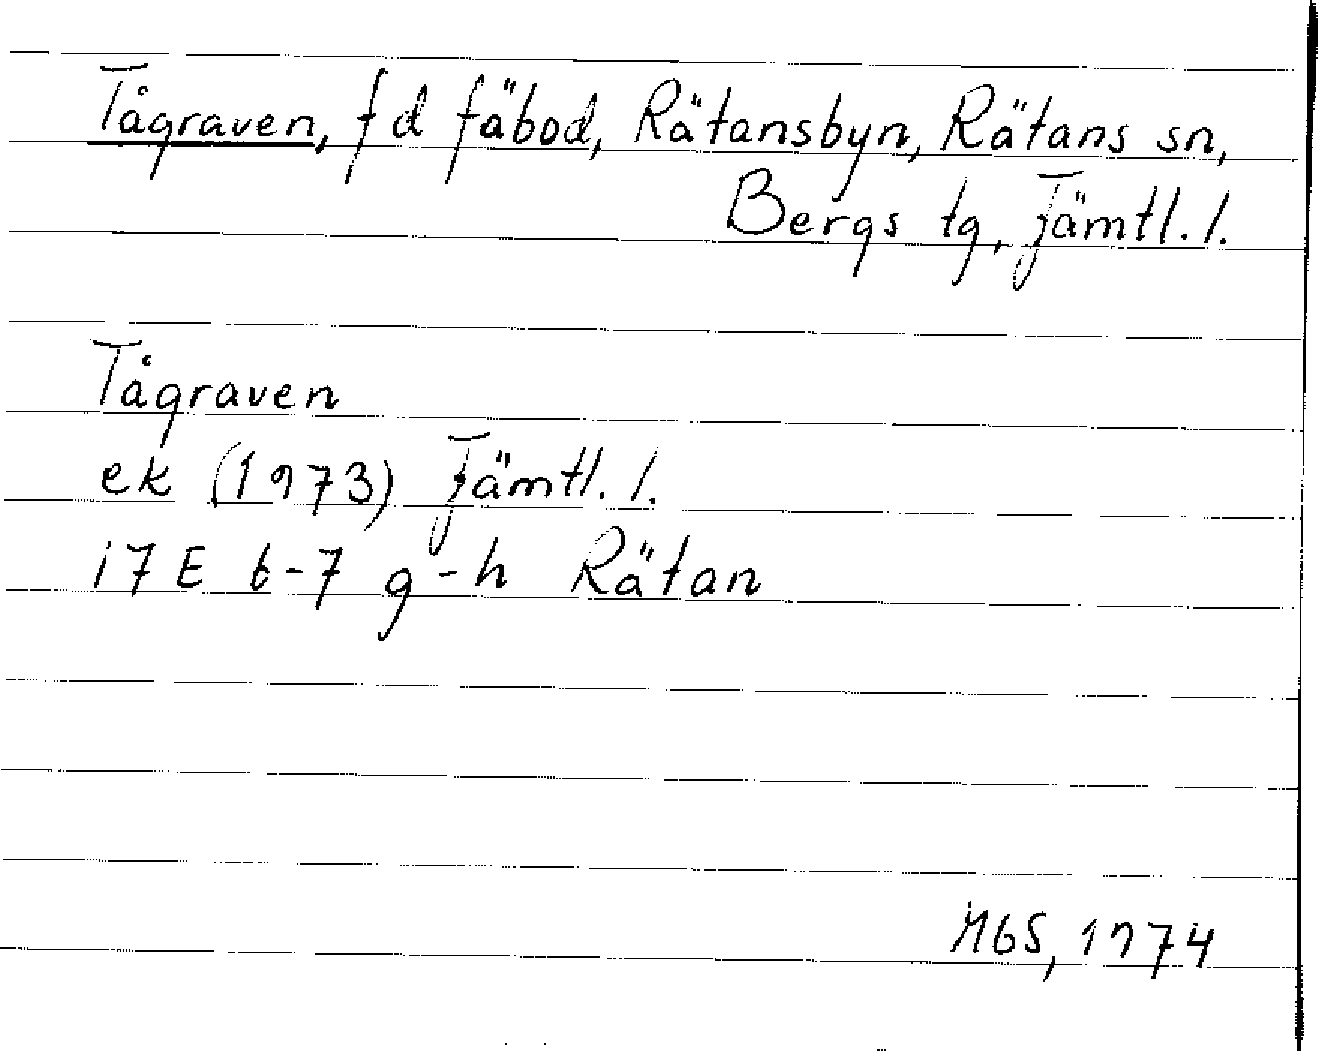 Tågraven, f d fäbod, Rätansbyn, Rätans sn,
Bergs tg, Jämtl. l.
Tågraven
ek (1973) Jämtl. l.
17 E 6-7 g-h Rätan
MGS, 1974